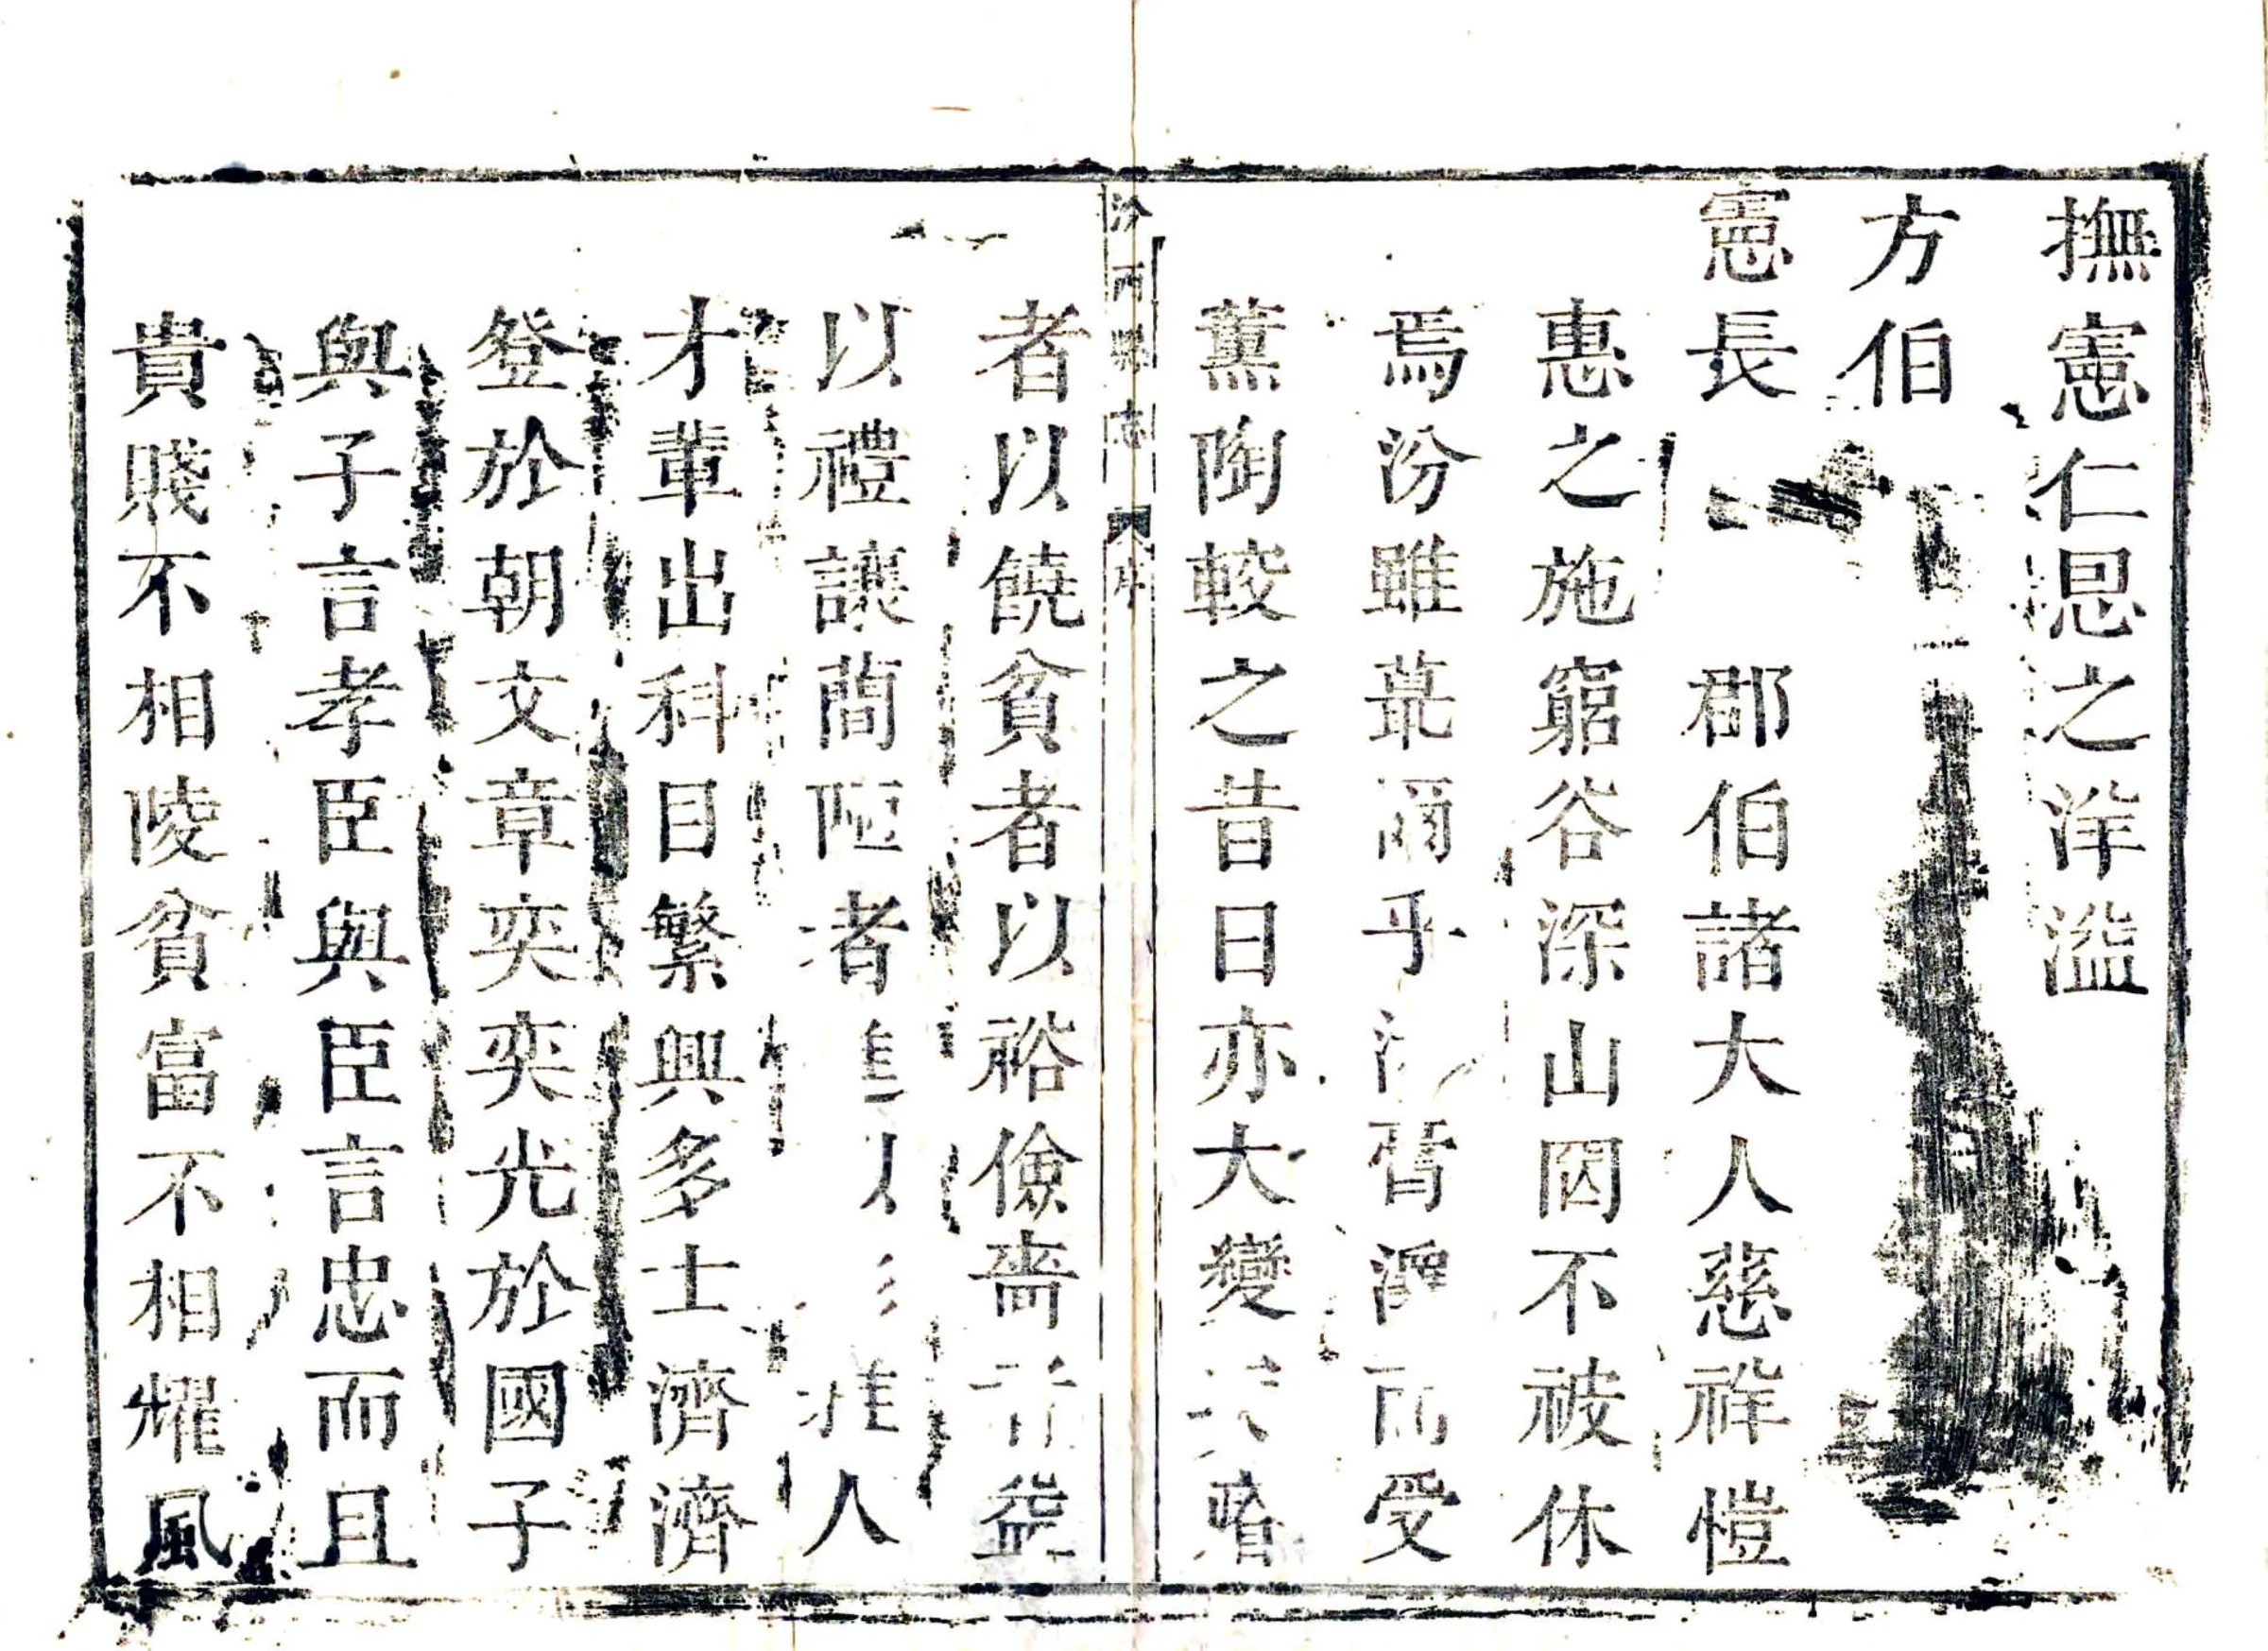 撫憲仁恩之洋溢
方伯
憲長　郡伯諸大人慈祥愷
惠之施窮谷深山罔不被休
焉汾雖蕞爾乎沐膏澤而受
薰陶較之昔日亦大變瘠
汾西縣志序
者以饒貧者以裕儉嗇者益
以禮讓簡陋者進人
才輩出科目繁興多士濟濟
登於朝文章奕奕光於國子
與子言孝臣與臣言忠而且
貴賤不相陵貧富不相耀風